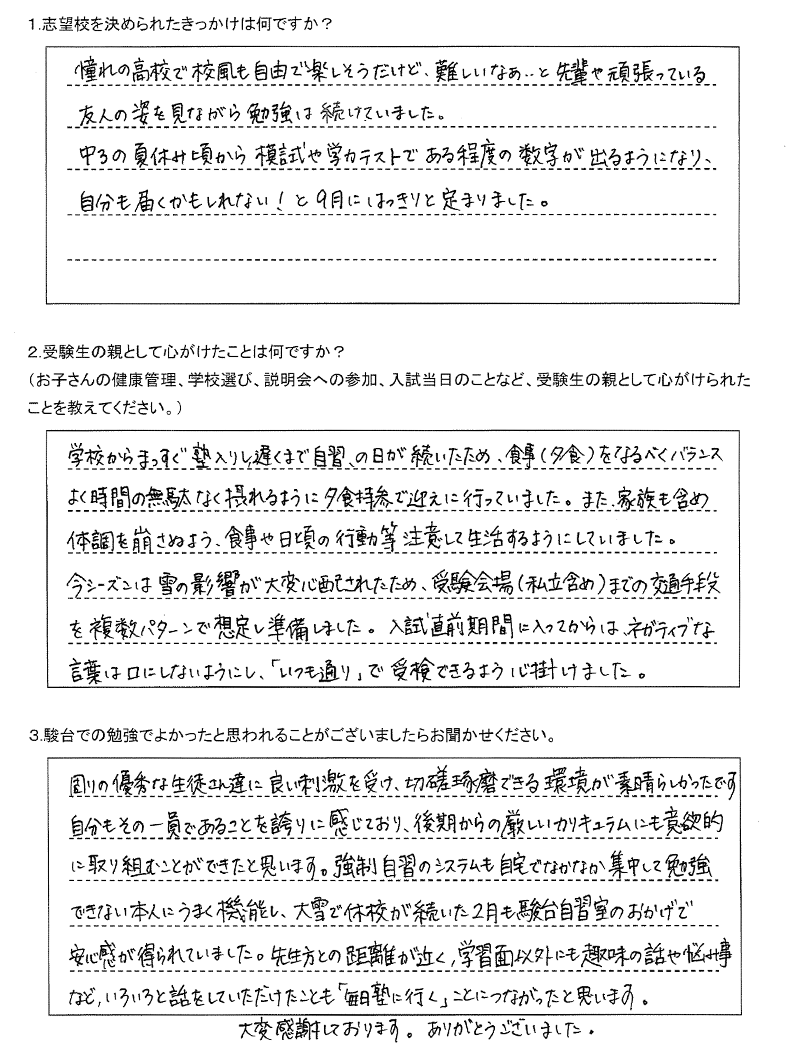 1.志望校を決められたきっかけは何ですか？
憧れの高校で校風も自由で楽しそうだけど、難しいなぁ‥と先輩や頑張っている
友人の姿を見ながら勉強は続けていました。
中3の夏休み頃から模試や学力テストである程度の数字が出るようになり、
自分も届くかもしれない！と9月にはっきりと定まりました。
2.受験生の親として心がけたことは何ですか？
（お子さんの健康管理、学校選び、説明会への参加、入試当日のことなど、受験生の親として心がけられた
ことを教えてください。）
学校からまっすぐ塾入りし遅くまで自習、の日が続いたため、食事（夕食）をなるべくバランス
よく時間の無駄なく摂れるように夕食持参で迎えに行っていました。また、家族も含め
体調を崩さぬよう、食事や日頃の行動等注意して生活するようにしていました。
今シーズンは雪の影響が大変心配されたため、受験会場（私立含め）までの交通手段
を複数パターンで想定し準備しました。入試直前期間に入ってからは、ネガティブな
言葉は口にしないようにし、「いつも通り」で受検できるよう心掛けました。
3.駿台での勉強でよかったと思われることがございましたらお聞かせください。
周りの優秀な生徒さん達に良い刺激を受け、切磋琢磨できる環境が素晴らしかったです
自分もその一員であることを誇りに感じており、後期からの厳しいカリキュラムにも意欲的
に取り組むことができたと思います。強制自習のシステムも自宅でなかなか集中して勉強
できない本人にうまく機能し、大雪で休校が続いた2月も駿台自習室のおかげで
安心感が得られていました。先生方との距離が近く、学習面以外にも趣味の話や悩み事
など、いろいろと話をしていただけたことも「毎日塾に行く」ことにつながったと思います。
大変感謝しております。ありがとうございました。